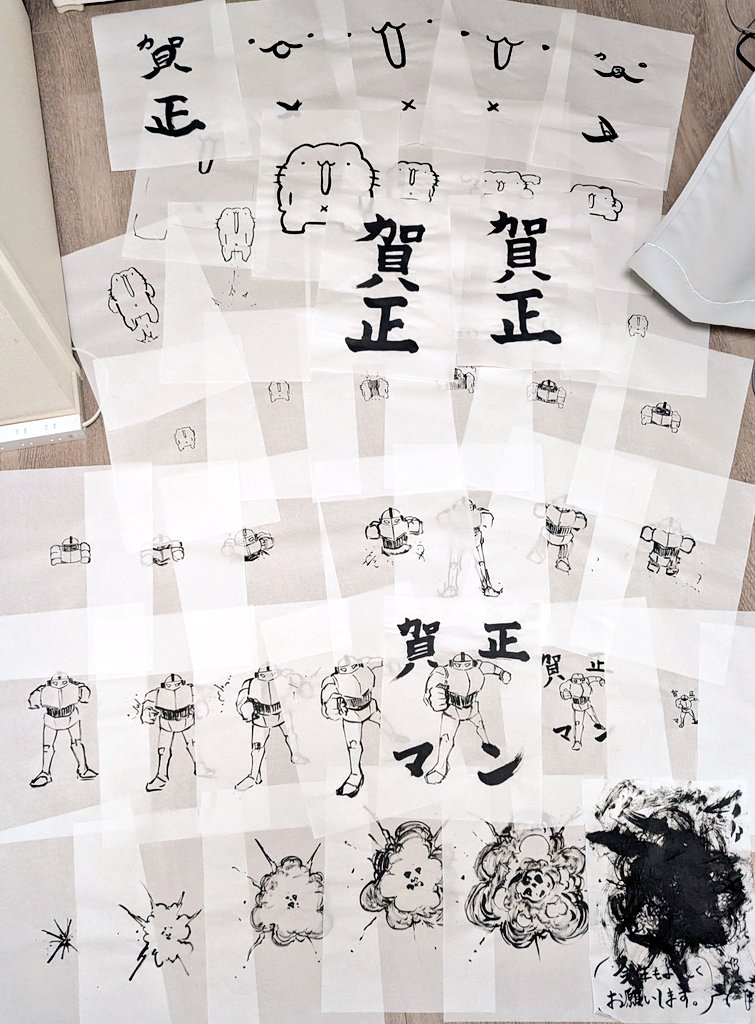 賀
正
賀
正
賀
正
賀 正
マン
賀 正
マン
賀 正
お願いします。